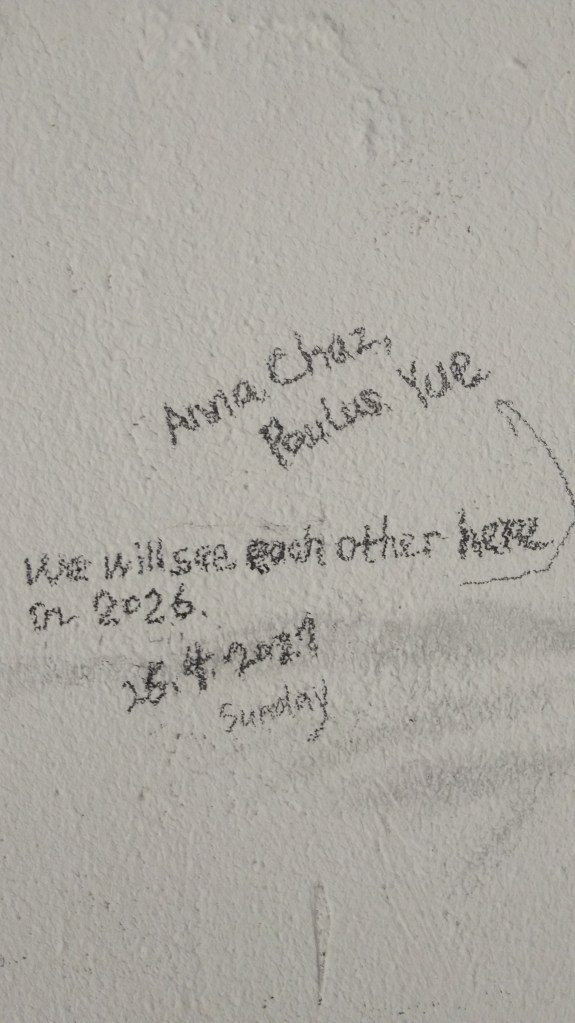 Anna Chaz,
Paulus Yue
We will see each other here
in 2026.
25.4.2021
Sunday